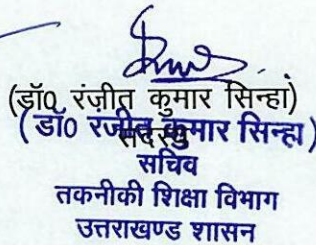 (डॉ0 रंजीत कुमार सिन्हा)
(डॉ0 रंजीत कुमार सिन्हा)
सदस्य
सचिव
तकनीकी शिक्षा विभाग
उत्तराखण्ड शासन